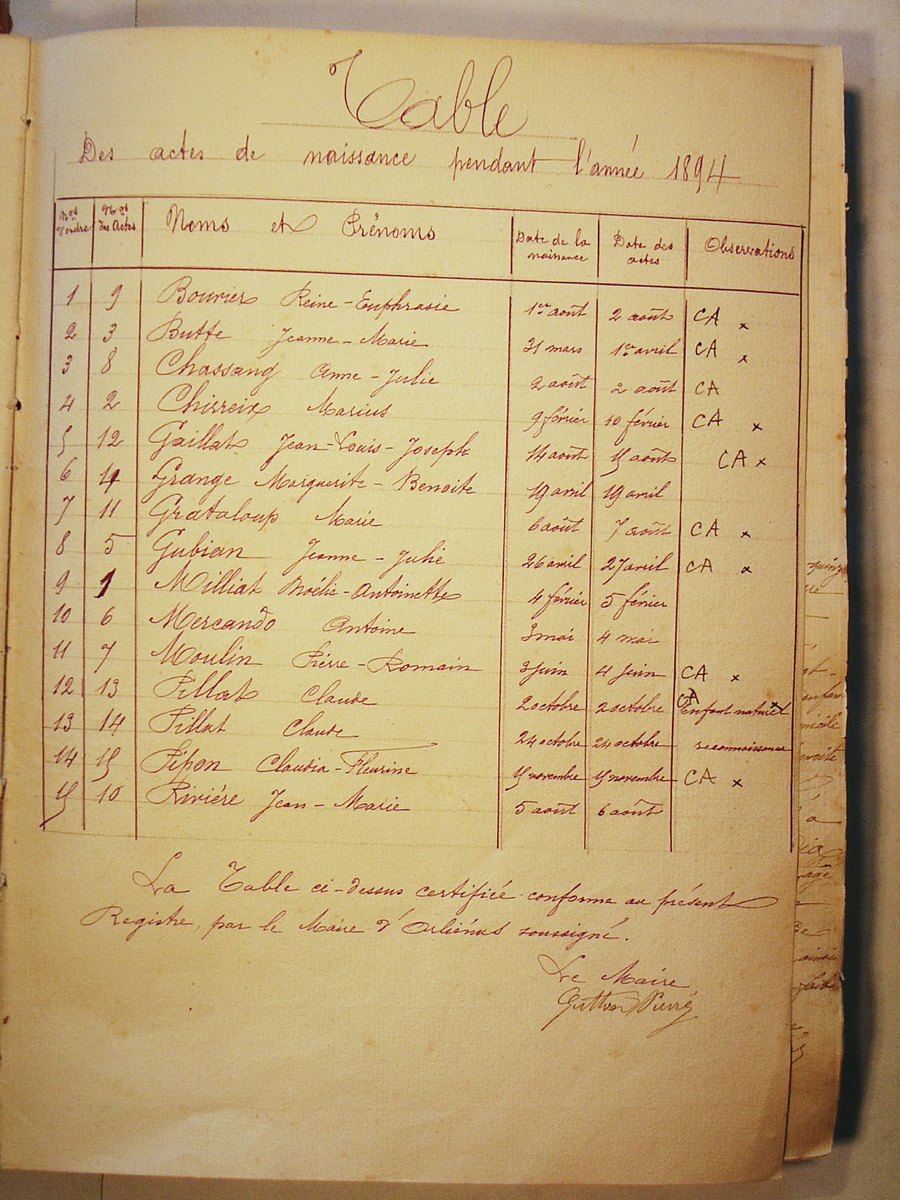 Table
Des actes de naissance pendant l'année 1894
Nos d'ordre Nos des Actes Noms et Prénoms Date de la naissance Date des actes Observations
1 9 Bouvier Reine-Euphrasie 1er août 2 août CA x
2 3 Butte Jeanne-Marie 31 mars 1er avril CA x
3 8 Chassang Anne-Julie 2 août 2 août CA
4 2 Chirreix Marius 9 février 10 février CA x
5 12 Gaillat Jean-Louis-Joseph 14 août 15 août CA x
6 4 Grange Marguerite-Benoite 19 avril 19 avril
7 11 Grataloup Marie 6 août 7 août CA x
8 5 Gubian Jeanne-Julie 26 avril 27 avril CA x
9 1 Milliat Noélie-Antoinette 4 février 5 février
10 6 Mercando Antoine 3 mai 4 mai
11 7 Moulin Pierre-Romain 3 juin 4 juin CA x
12 13 Pillat Claude 2 octobre 2 octobre CA Enfant naturel x
13 14 Pillat Claude 24 octobre 24 octobre reconnaissance
14 15 Pipon Claudia-Fleurine 15 novembre 15 novembre CA x
15 10 Rivière Jean-Marie 5 août 6 août
La Table ci-dessus certifiée conforme au présent
Registre, par le Maire d'Orliénas soussigné.
Le Maire